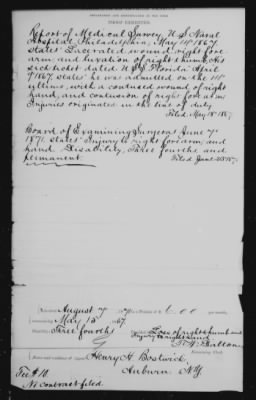 Report of Medical Survey, U.S. Naval
Hospital, Philadelphia, May 11th 1867,
states: Lacerated wound, right fore-
arm, and luxation of right thumb, His
sick ticket dated U.S.S. Florida April
9 1867, states: he was admitted on the 11th
with a contused wound of right
hand, and contusion of right forearm
Injuries originated in the line of duty.
Filed May 18th 1867.
Board of Examining Surgeons June 7th
1871, states: Injury to right forearm, and
hand. Disability, Three fourths and
permanent.
Filed June
August 7 187 6.00 per month,
commencing May 15 1867.
Three fourths Loss of right thumb and
Injury to right hand
Examining Clerk.
Name and residence of Agent, Henry H. Bostwick,
Auburn, N.Y.
Fee $10.
No contract filed.